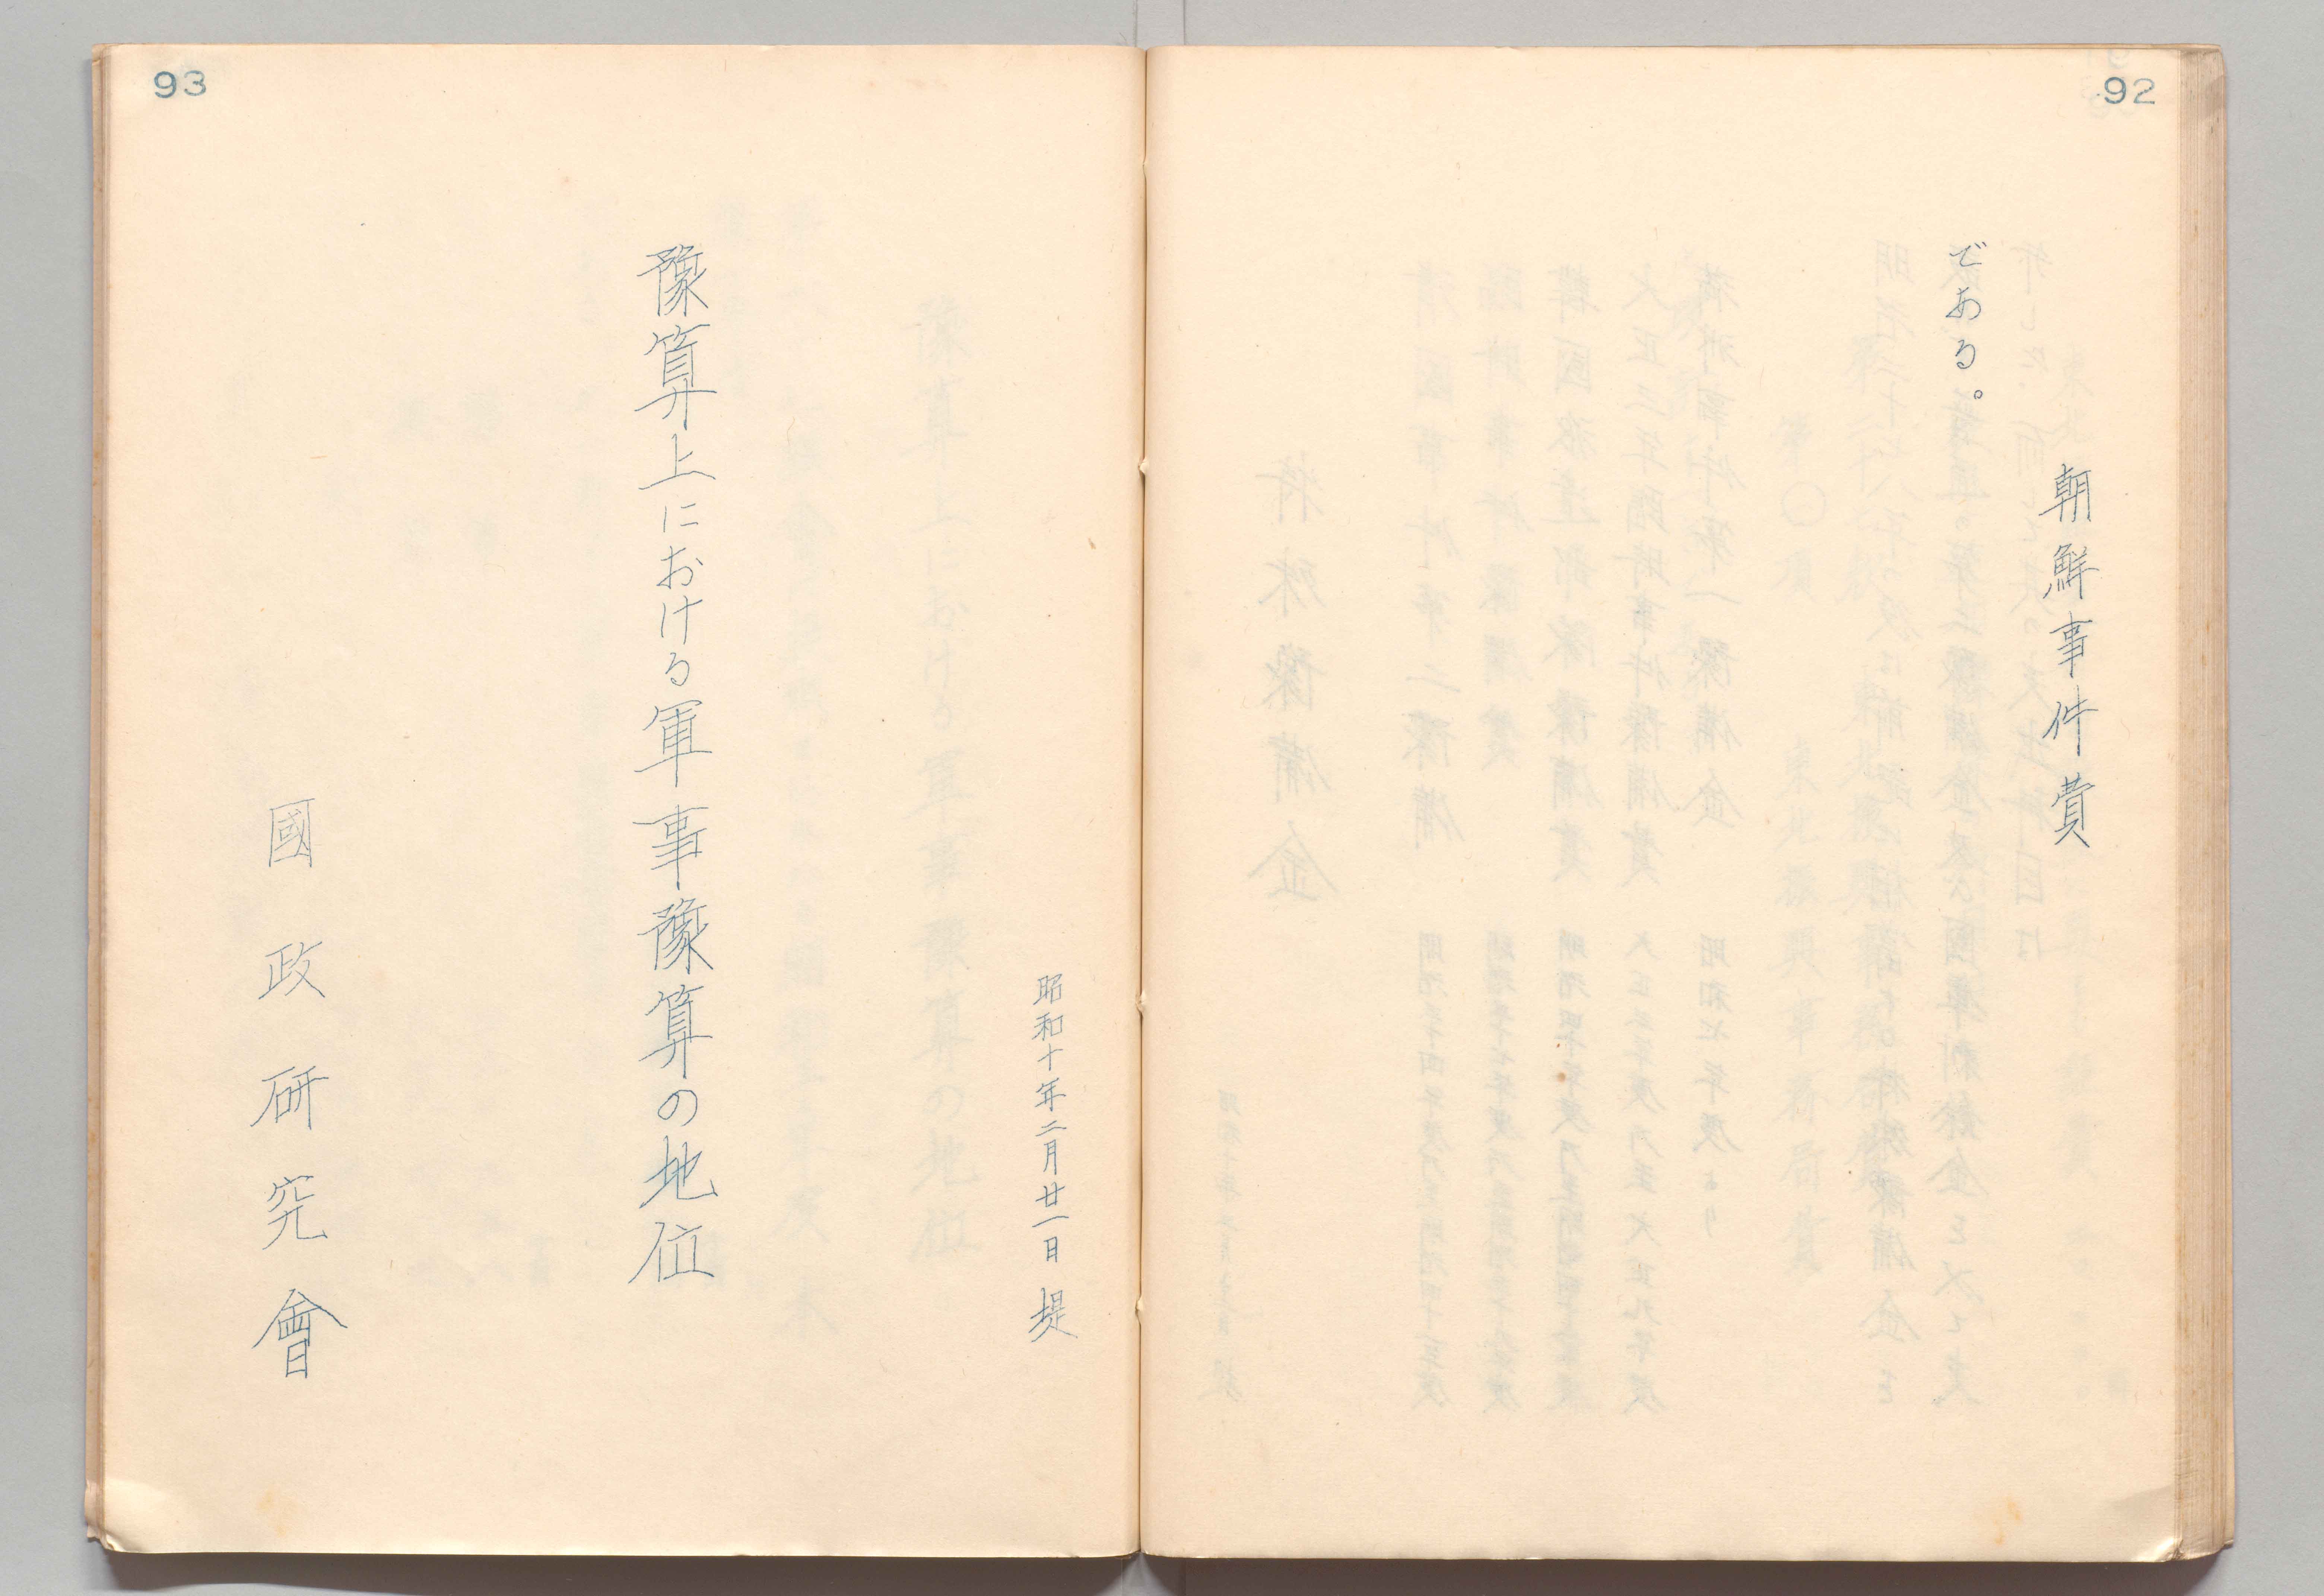 92
朝鮮事件費
である。
93
昭和十年二月廿一日 堤
豫算上における軍事豫算の地位
國政研究會